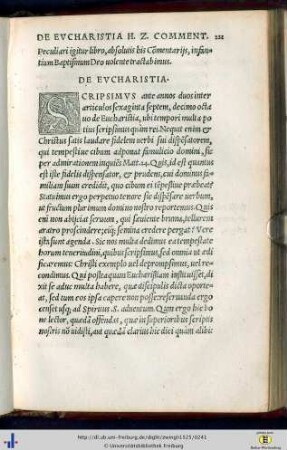 DE EVCHARISTIA H. Z. COMMENT. 221
Peculiari igitur libro, absolutis his Cõmentarijs, infan
tium Baptismum Deo uolente tractabimus.
DE EVCHARISTIA.
SCRIPSIMVS ante annos duos inter
articulos sexaginta septem, decimo octa
uo de Eucharistia, ubi tempori multa po
tius scripsimus quàm rei. Neque enim er
Christus satis laudare fidelem uerbi sui dispẽsatorem,
qui tempestiue cibum adponat famulicio domini, su
per admirationem inquit Matt. 24. Quis, id est quantus
est iste fidelis dispensator, et prudens, cui dominus fa
miliam suam credidit, quo cibum ei tẽpestiue præbeat?
Statuimus ergo perpetuo tenore sic dispẽsare uerbum,
ut fructum plurimum domini nostro reportemus. Quis
eni non abijciat seruum, qui sæuiente bruma, tellurem
aratro proscindere; eiq; semina credere pergat? Vere
isti sunt agenda. Sic nos multa dedimus ea tempestate
horum teneritudini, quibus scripsimus, sed omnia ut ædi
ficaremus: Christi exemplo uel depromsimus, uel re
condimus. Qui postquam Eucharistiam instituisset, di
xit se adhuc multa habere, quæ discipulis dicta oporte
at, sed tum eos ipsa capere non posse: seruanda ergo
censet usq; ad Spiritus S. aduentum. Quum ergo hic bo
ne lector, quædã offendes, quæ in superioribus scriptis
nostris nõ uidisti, aut quædã clarius hic dici quàm alibi:
http://dl.ub.uni-freiburg.de/diglit/zwingli1525/0241
© Universitätsbibliothek Freiburg